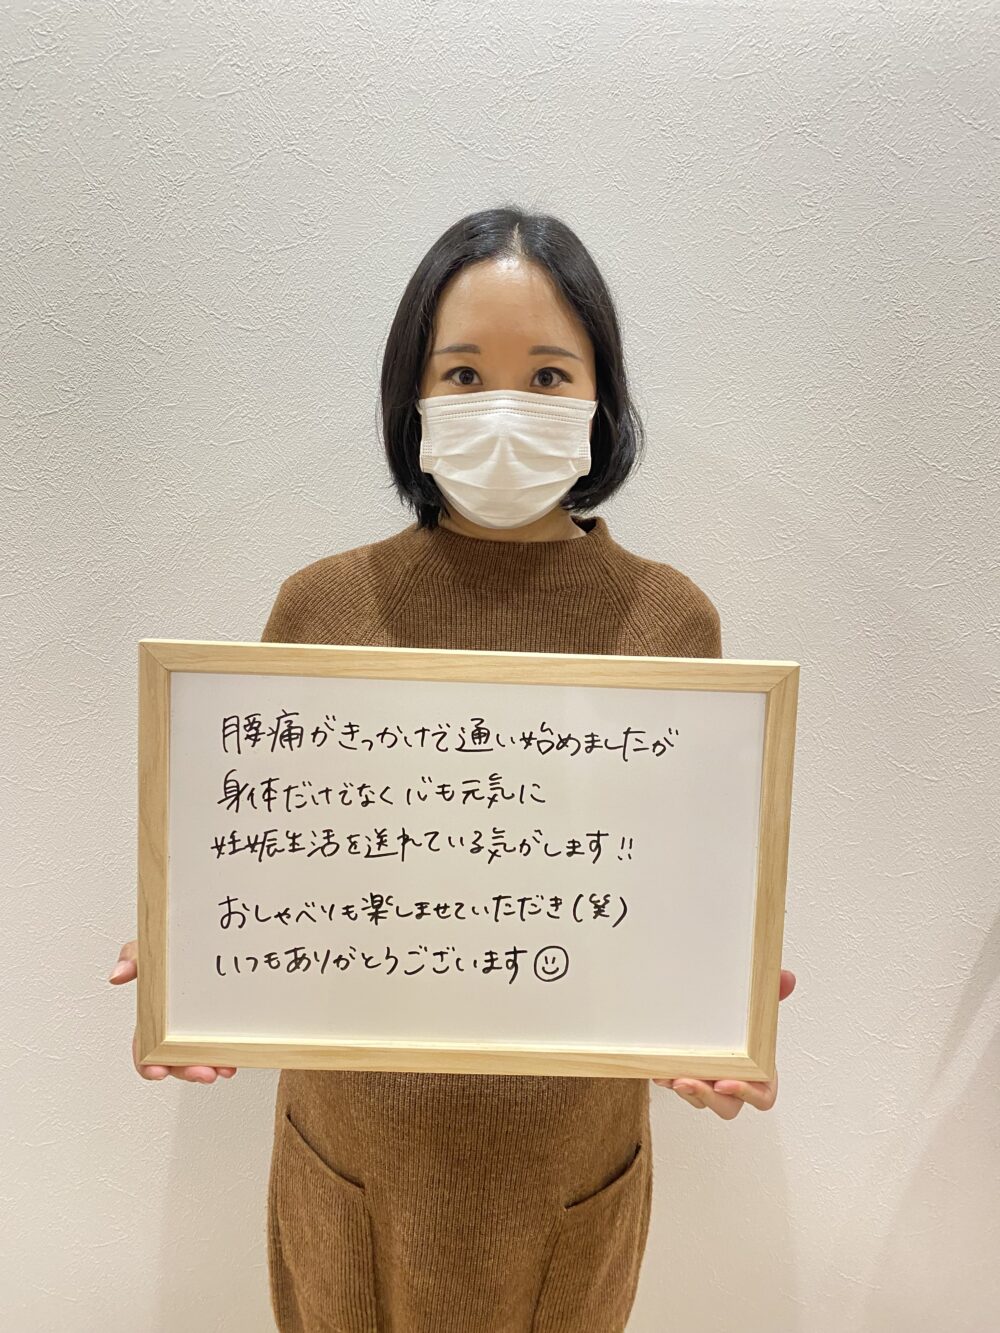 腰痛がきっかけで通い始めましたが
身体だけでなく心も元気に
妊娠生活を送れている気がします!!
おしゃべりも楽しませていただき(笑)
いつもありがとうございます☺